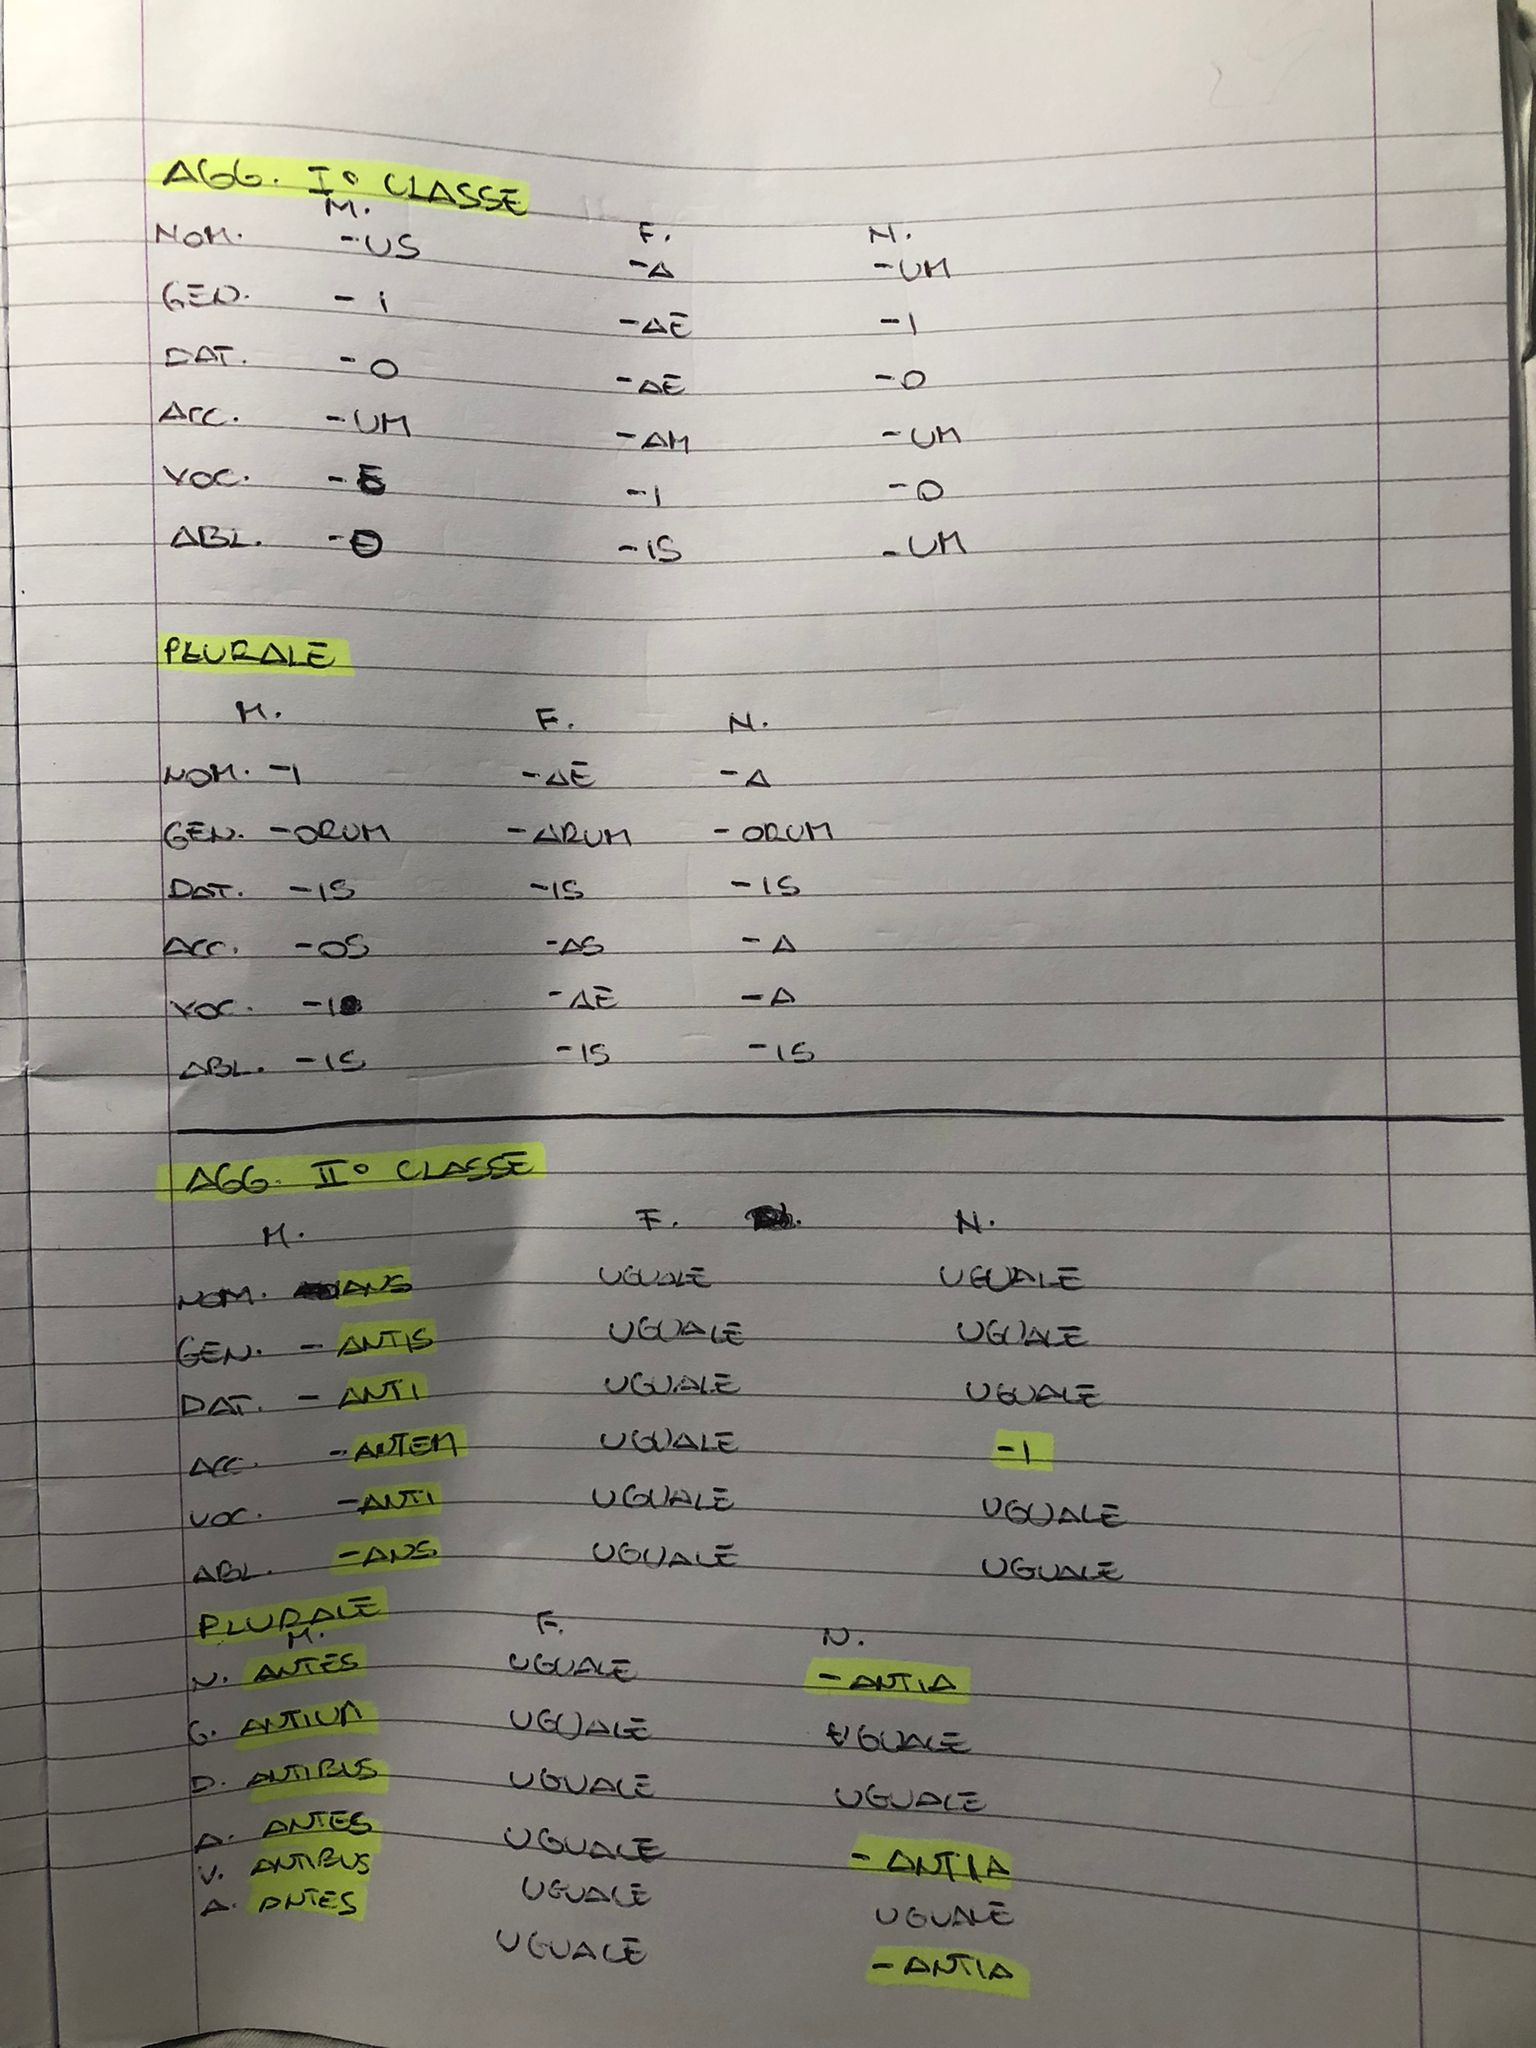 AGG. I° CLASSE
M. F. N.
NOM. -US -A -UM
GEN. -I -AE -I
DAT. -O -AE -O
ACC. -UM -AM -UM
VOC. -E -I -O
ABL. -O -IS -UM
PLURALE
M. F. N.
NOM. -I -AE -A
GEN. -ORUM -ARUM -ORUM
DAT. -IS -IS -IS
ACC. -OS -AS -A
VOC. -I -AE -A
ABL. -IS -IS -IS
AGG. II° CLASSE
M. F. N.
NOM. ANS UGUALE UGUALE
GEN. -ANTIS UGUALE UGUALE
DAT. -ANTI UGUALE UGUALE
ACC. -ANTEM UGUALE -I
VOC. -ANTI UGUALE UGUALE
ABL. -ANS. UGUALE UGUALE
PLURALE
M. F. N.
N. ANTES UGUALE -ANTIA
G. ANTIUM UGUALE UGUALE
D. ANTIBUS UGUALE UGUALE
A. ANTES UGUALE -ANTIA
V. ANTIBUS UGUALE UGUALE
A. ANTES UGUALE -ANTIA